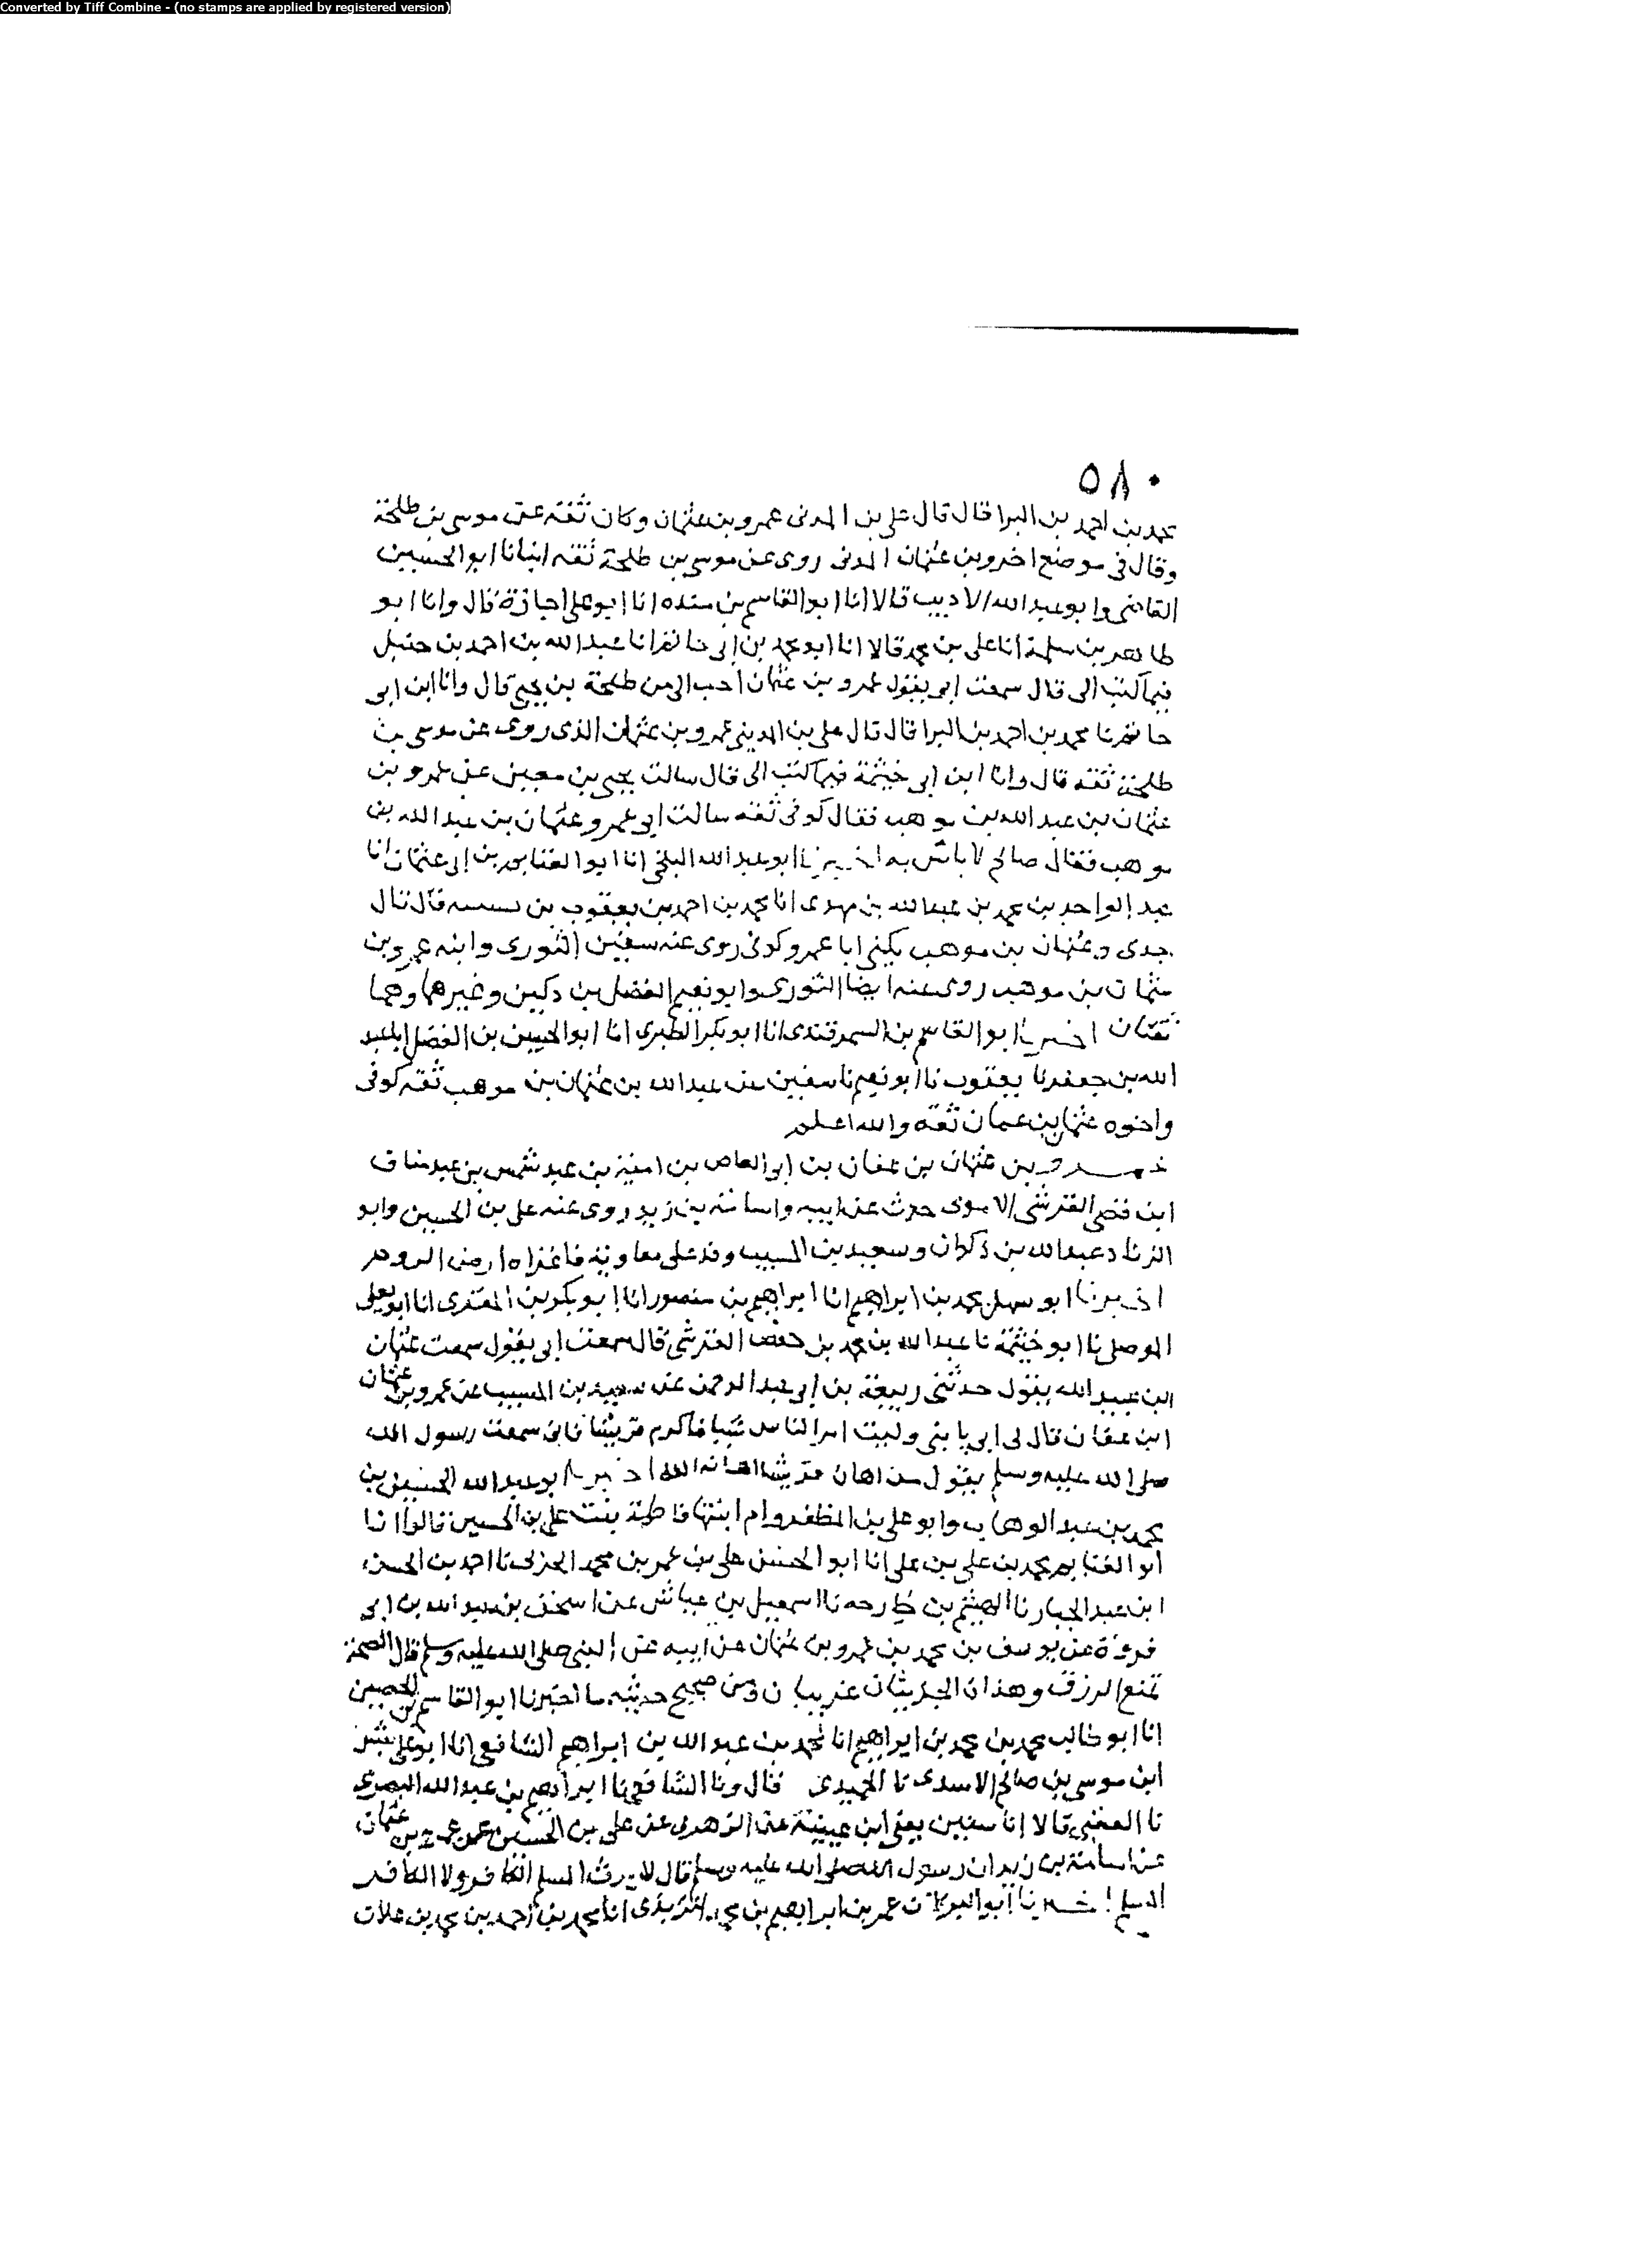 Converted by Tiff Combine - (no stamps are applied by registered version)
٥٨٠
محمد بن احمد بن البرا قال قال علي بن المدني عمرو بن عثمان وكان ثقة عن موسى بن طلحة
وقال في موضع اخر وبن عثمان المدني روى عن موسى بن طلحة ثقه انبانا ابو الحسين
القاضي وابو عبد الله الاديب قالا انا ابو القاسم بن منده انا ابو علي اجازة قال وانا ابو
طاهر بن سلمة انا علي بن محمد قالا انا ابو محمد بن ابي حاتم انا عبد الله بن احمد بن حنبل
فيما كتب الى قال سمعت ابي يقول عمرو بن عثمان احب الى من طلحة بن يحيى قال وانا ابن ابي
حاتم نا محمد بن احمد بن البرا قال قال علي بن المديني عمرو بن عثمان الذى روى عن موسى بن
طلحة ثقه قال وانا ابن ابي خيثمة فيما كتب الى قال سالت يحيى بن معين عن عمرو بن
عثمان بن عبد الله بن موهب فقال كوفى ثقه سالت ابي عمرو عثمان بن عبد الله بن
موهب فقال صالح لا باس به اخبرنا ابو عبد الله البلخي انا ابو الغنايم بن ابي عثمان انا
عبد الواحد بن محمد بن عبد الله بن مهدى انا محمد بن احمد بن يعقوب بن قال قال
جدى وعثمان بن موهب يكنى ابا عمرو كوفى روى عنه سفين الثورى وابنه عمرو بن
عثمان بن موهب روى عنه ايضا الثورى وابو نعيم الفضل بن دكين وغيرهما وهما
ثقتان اخبرنا ابو القاسم بن السمرقندى انا ابو بكر الطبرى انا ابو الحسين بن الفضل انا عبد
الله بن جعفر نا يعقوب نا ابو نعيم نا سفين عن عبد الله بن عثمان بن موهب ثقه كوفى
واخوه عثمان بن عثمان ثقة والله اعلم
عمرو بن عثمان بن عفان بن ابي العاص بن امية بن عبد شمس بن عبد مناف
ابن قصي القرشي الاموى حدث عن ابيه واسامة بن زيد روى عنه علي بن الحسين وابو
الزناد عبد الله بن ذكوان وسعيد بن المسيب وفد على معاوية فاغزاه ارض الروم
اخبرنا ابو سهل محمد بن ابراهيم انا ابراهيم بن منصور انا ابو بكر بن المقرى انا ابو يعلى
الموصلي نا ابو خيثمة نا عبد الله بن محمد بن حفص القرشي قال سمعت ابي يقول سمعت عثمان
ابن عبيد الله يقول حدثنى ربيعة بن ابي عبد الرحمن عن سعيد بن المسيب عن عمرو بن عثمان
ابن عفان قال لى ابي يا بنى ان وليت امر الناس شيا فاكرم قريشا فانى سمعت رسول الله
صلى الله عليه وسلم يقول من اهان قريشا اهانه الله اخبرنا ابو عبد الله الحسين بن
محمد بن عبد الوهاب وابو علي بن المظفر وام ابنتها فاطمة بنت علي بن الحسين قالوا انا
ابو الغنايم محمد بن علي بن علي انا ابو الحسن علي بن عمر بن محمد الحربى نا احمد بن الحسن
ابن عبد الجبار نا الهيثم بن خارجه نا اسمعيل بن عياش عن اسحق بن عبد الله بن ابي
فروة عن يوسف بن محمد بن عمرو بن عثمان عن ابيه عن النبي صلى الله عليه وسلم قال الصبحة
تمنع الرزق وهذان الحديثان غريبان ومن صحيح حديثه ما اخبرنا ابو القاسم بن الحصين
انا ابو طالب محمد بن محمد بن ابراهيم انا محمد بن عبد الله بن ابراهيم الشافعي انا ابو علي بشر
ابن موسى بن صالح الاسدى نا الحميدى قال ونا الشافعي نا ابراهيم بن عبد الله البصرى
نا القعنبي قالا انا سفين يعنى ابن عيينة عن الزهرى عن علي بن الحسين عن عمرو بن عثمان
عن اسامة بن زيد ان رسول الله صلى الله عليه وسلم قال لا يرث المسلم الكافر ولا الكافر
المسلم اخبرنا ابو البركات عمر بن ابراهيم بن محمد الزيدى انا محمد بن احمد بن محمد بن علان